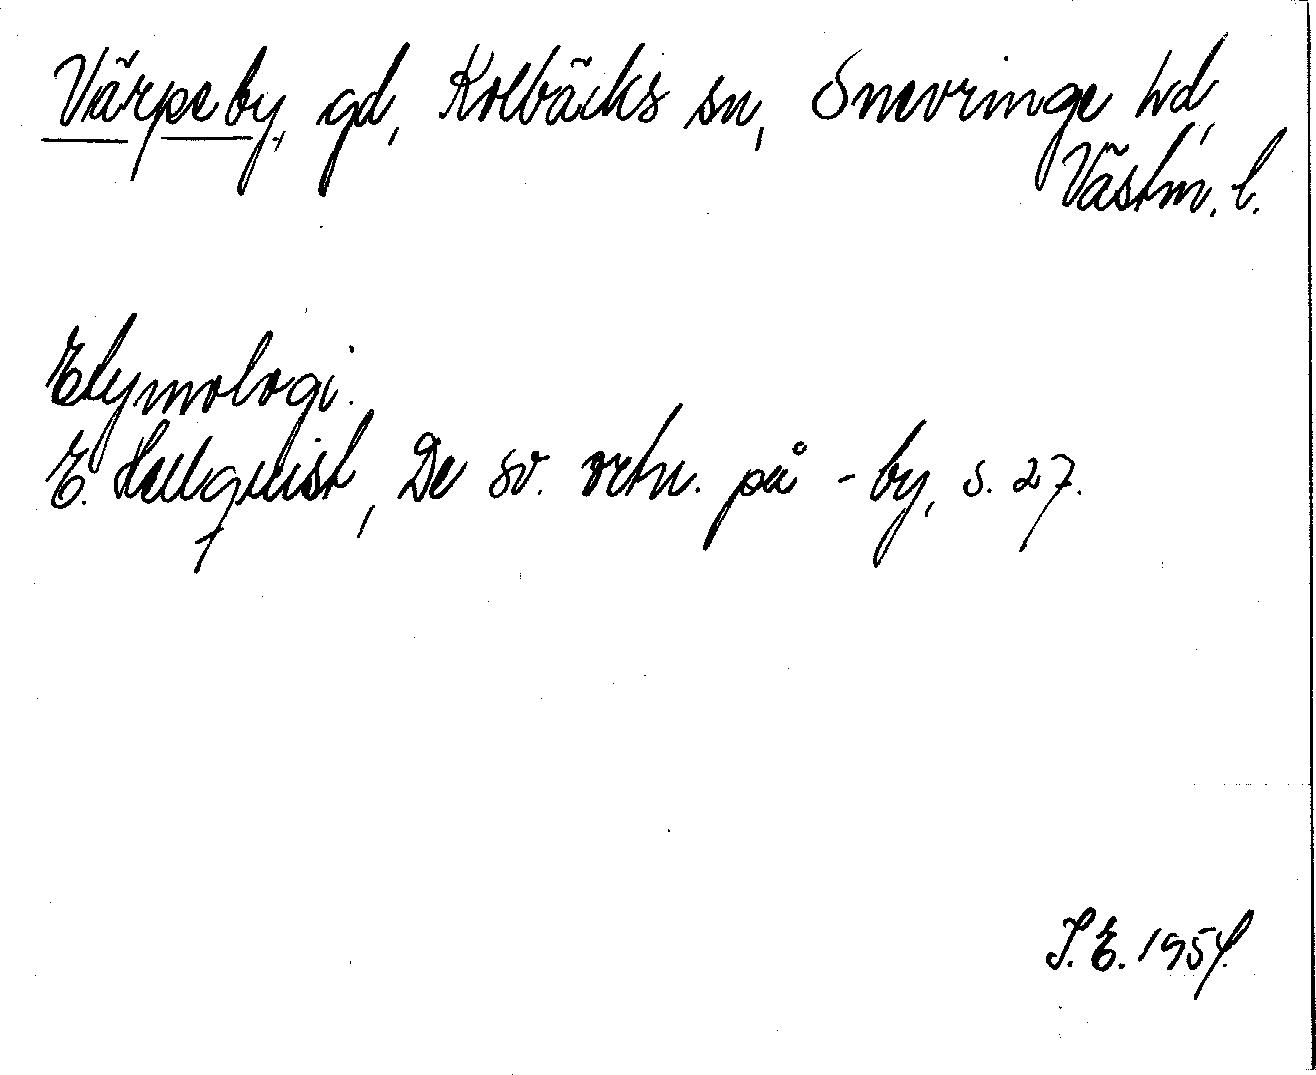 Värpeby, gd, Kolbäcks sn, Snevringe hd,
Västm. l.
Etymologi.
E. Hellquist, De sv. ortn. på -by, s. 27.
S. E. 1954.